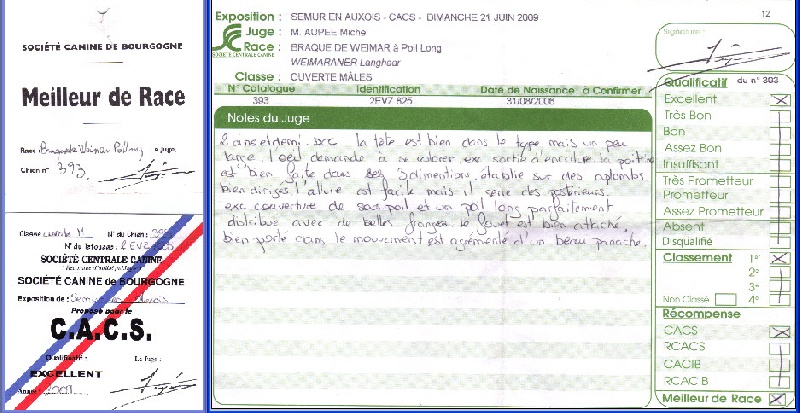 SOCIÉTÉ CANINE DE BOURGOGNE
Meilleur de Race
Race
Chien n° 393
Le Juge,
Classe ouverte M N° du Chien:
N° de tatouage
SOCIÉTÉ CENTRALE CANINE
SOCIÉTÉ CANINE de BOURGOGNE
Exposition de :
Propose pour le
C.A.C.S.
Qualificatif : Le Juge :
EXCELLENT
Année : 2009
Exposition : SEMUR EN AUXOIS - CACS - DIMANCHE 21 JUIN 2009
12
Juge : M. AUPEE Miche
Race : BRAQUE DE WEIMAR à Poil Long
WEIMARANER Langhaar
SOCIÉTÉ CENTRALE CANINE
Classe : OUVERTE MÂLES
N° Catalogue Identification Date de Naissance à Confirmer
393 2EVZ 825 31/08/2006
Notes du Juge
2 ans et demi. exc la tête est bien dans le type mais un peu
large. l'oeil demande à se colorer exc sortie d'encolure la poitrine
est bien faite dans ses 3 dimentions, établie sur des aplombs
bien dirigés l'allure est facile mais il serre des postérieurs.
exc couverture de sous poil et un poil long parfaitement
distribué avec de belles franges. le fouet est bien attaché,
bien porté dans le mouvement est agrémenté d'un beau panache.
Signature :
Qualificatif du n° 393
Excellent
Très Bon
Bon
Assez Bon
Insuffisant
Très Prometteur
Prometteur
Assez Prometteur
Absent
Disqualifié
Classement 1°
2°
3°
Non Classé 4°
Récompense
CACS
RCACS
CACIB
RCACIB
Meilleur de Race